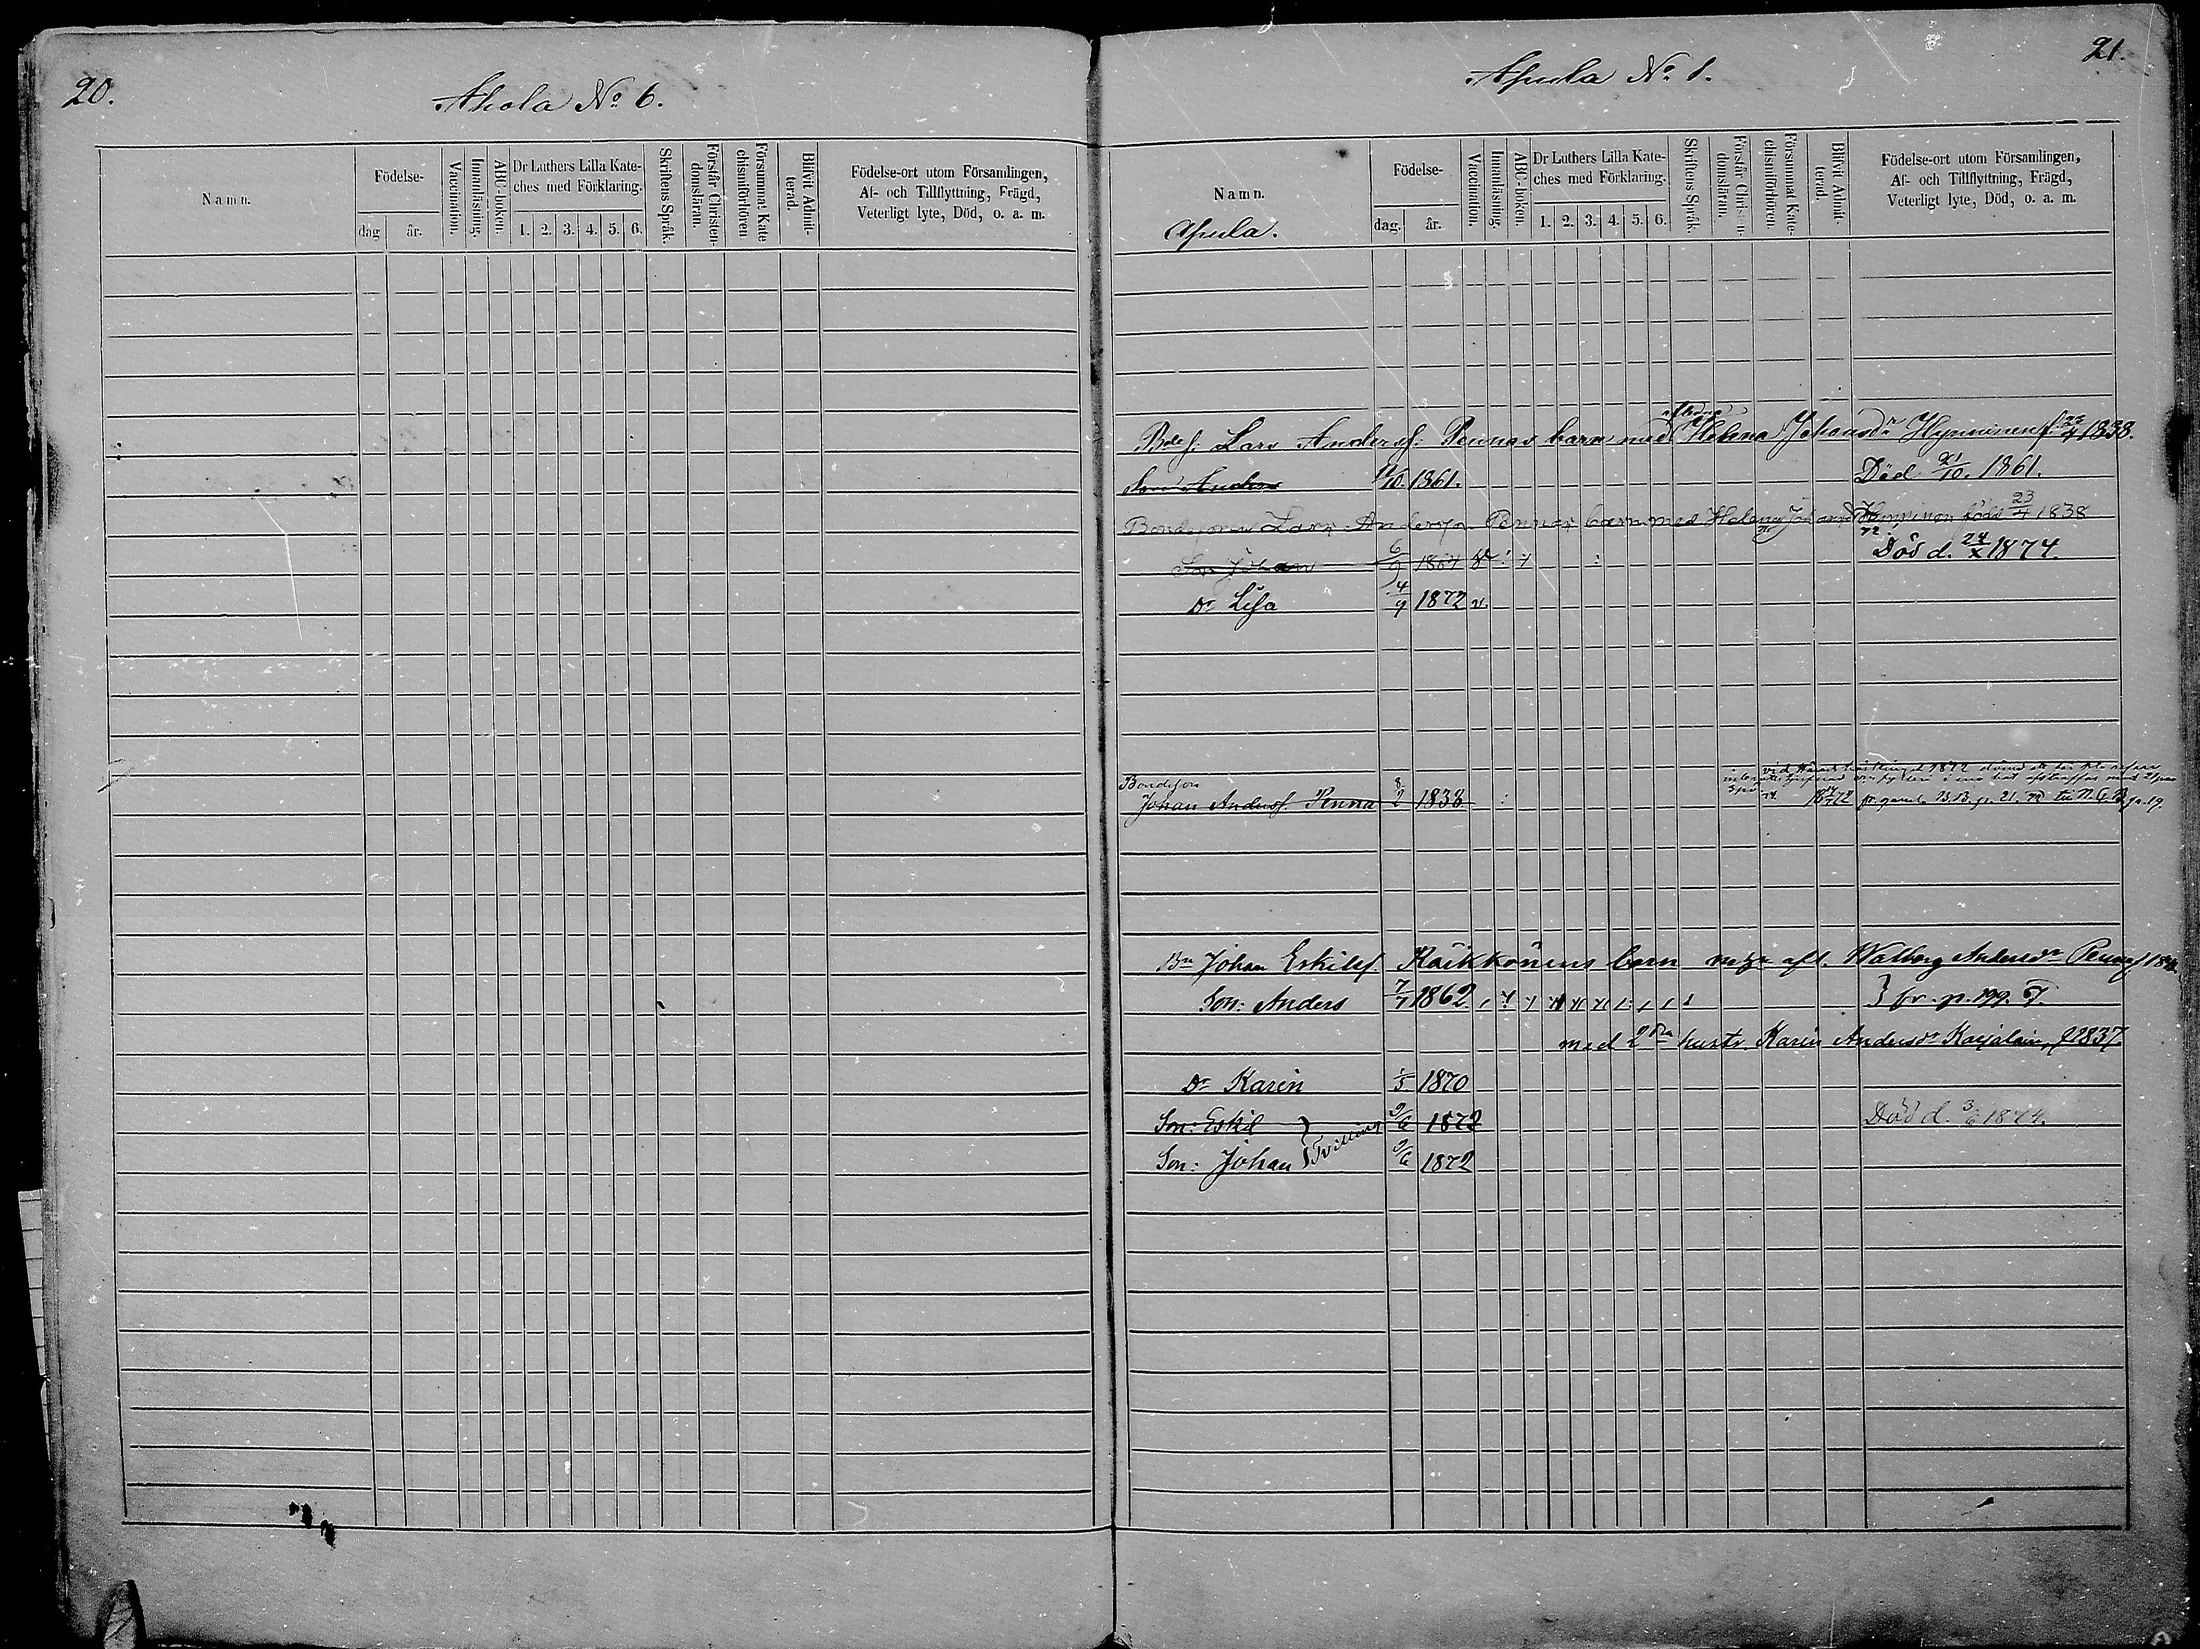 20.
Ahola No 6.
Namn.
Födelse-
dag
år.
Vaccination.
Innanläsning.
ABC-boken.
Dr Luthers Lilla Kate-
ches med Förklaring.
1. 2. 3. 4. 5. 6.
Skriftens Språk.
Förstår Christen-
domsläran.
Försummat Kate
chismiförhören
Blifvit Admit-
terad.
Födelse-ort utom Församlingen,
Af- och Tillflyttning, Frägd,
Veterligt lyte, Död, o. a. m.
21.
Apula No 1.
Namn.
Apula.
Födelse-
dag.
år.
Vaccination.
Innanläsning.
ABC-boken.
Dr Luthers Lilla Kate-
ches med Förklaring.
1. 2. 3. 4. 5. 6.
Skriftens Språk.
Förstår Christen-
domsläran.
Försummat Kate-
chismiförhören.
Blifvit Admit-
terad.
Födelse-ort utom Församlingen,
Af- och Tillflyttning, Frägd,
Veterligt lyte, Död, o. a. m.
aflidna
Lars Andersf: Pennas barn med Helena Johansdr Hynninen f. 23/4 1838.
Son Anders 11/10. 1861. Död 21/10. 1861.
Bondeson Lars Andersson Pennas barn med Helena Hynninen född 23/4 1838
Son Johan 6/9 1864 Död d. 24/x 1874.
Dr Lisa 4/9 1872 v.
Bondeson
Johan Andersf. Penna 8/2 1838
Bn Johan Eskilsf. Räikkönens barn med afl. Walborg Andersdr Penna
Son: Anders 7/7 1862 fr. p. 199.
med 2dra hustr. Karin Andersdr Karjalain, f 1837
Dr Karin 1/5 1870
Son: Eskil 2/6 1872 Död d. 3/6 1874.
Son: Johan } Tvilling 2/6 1872